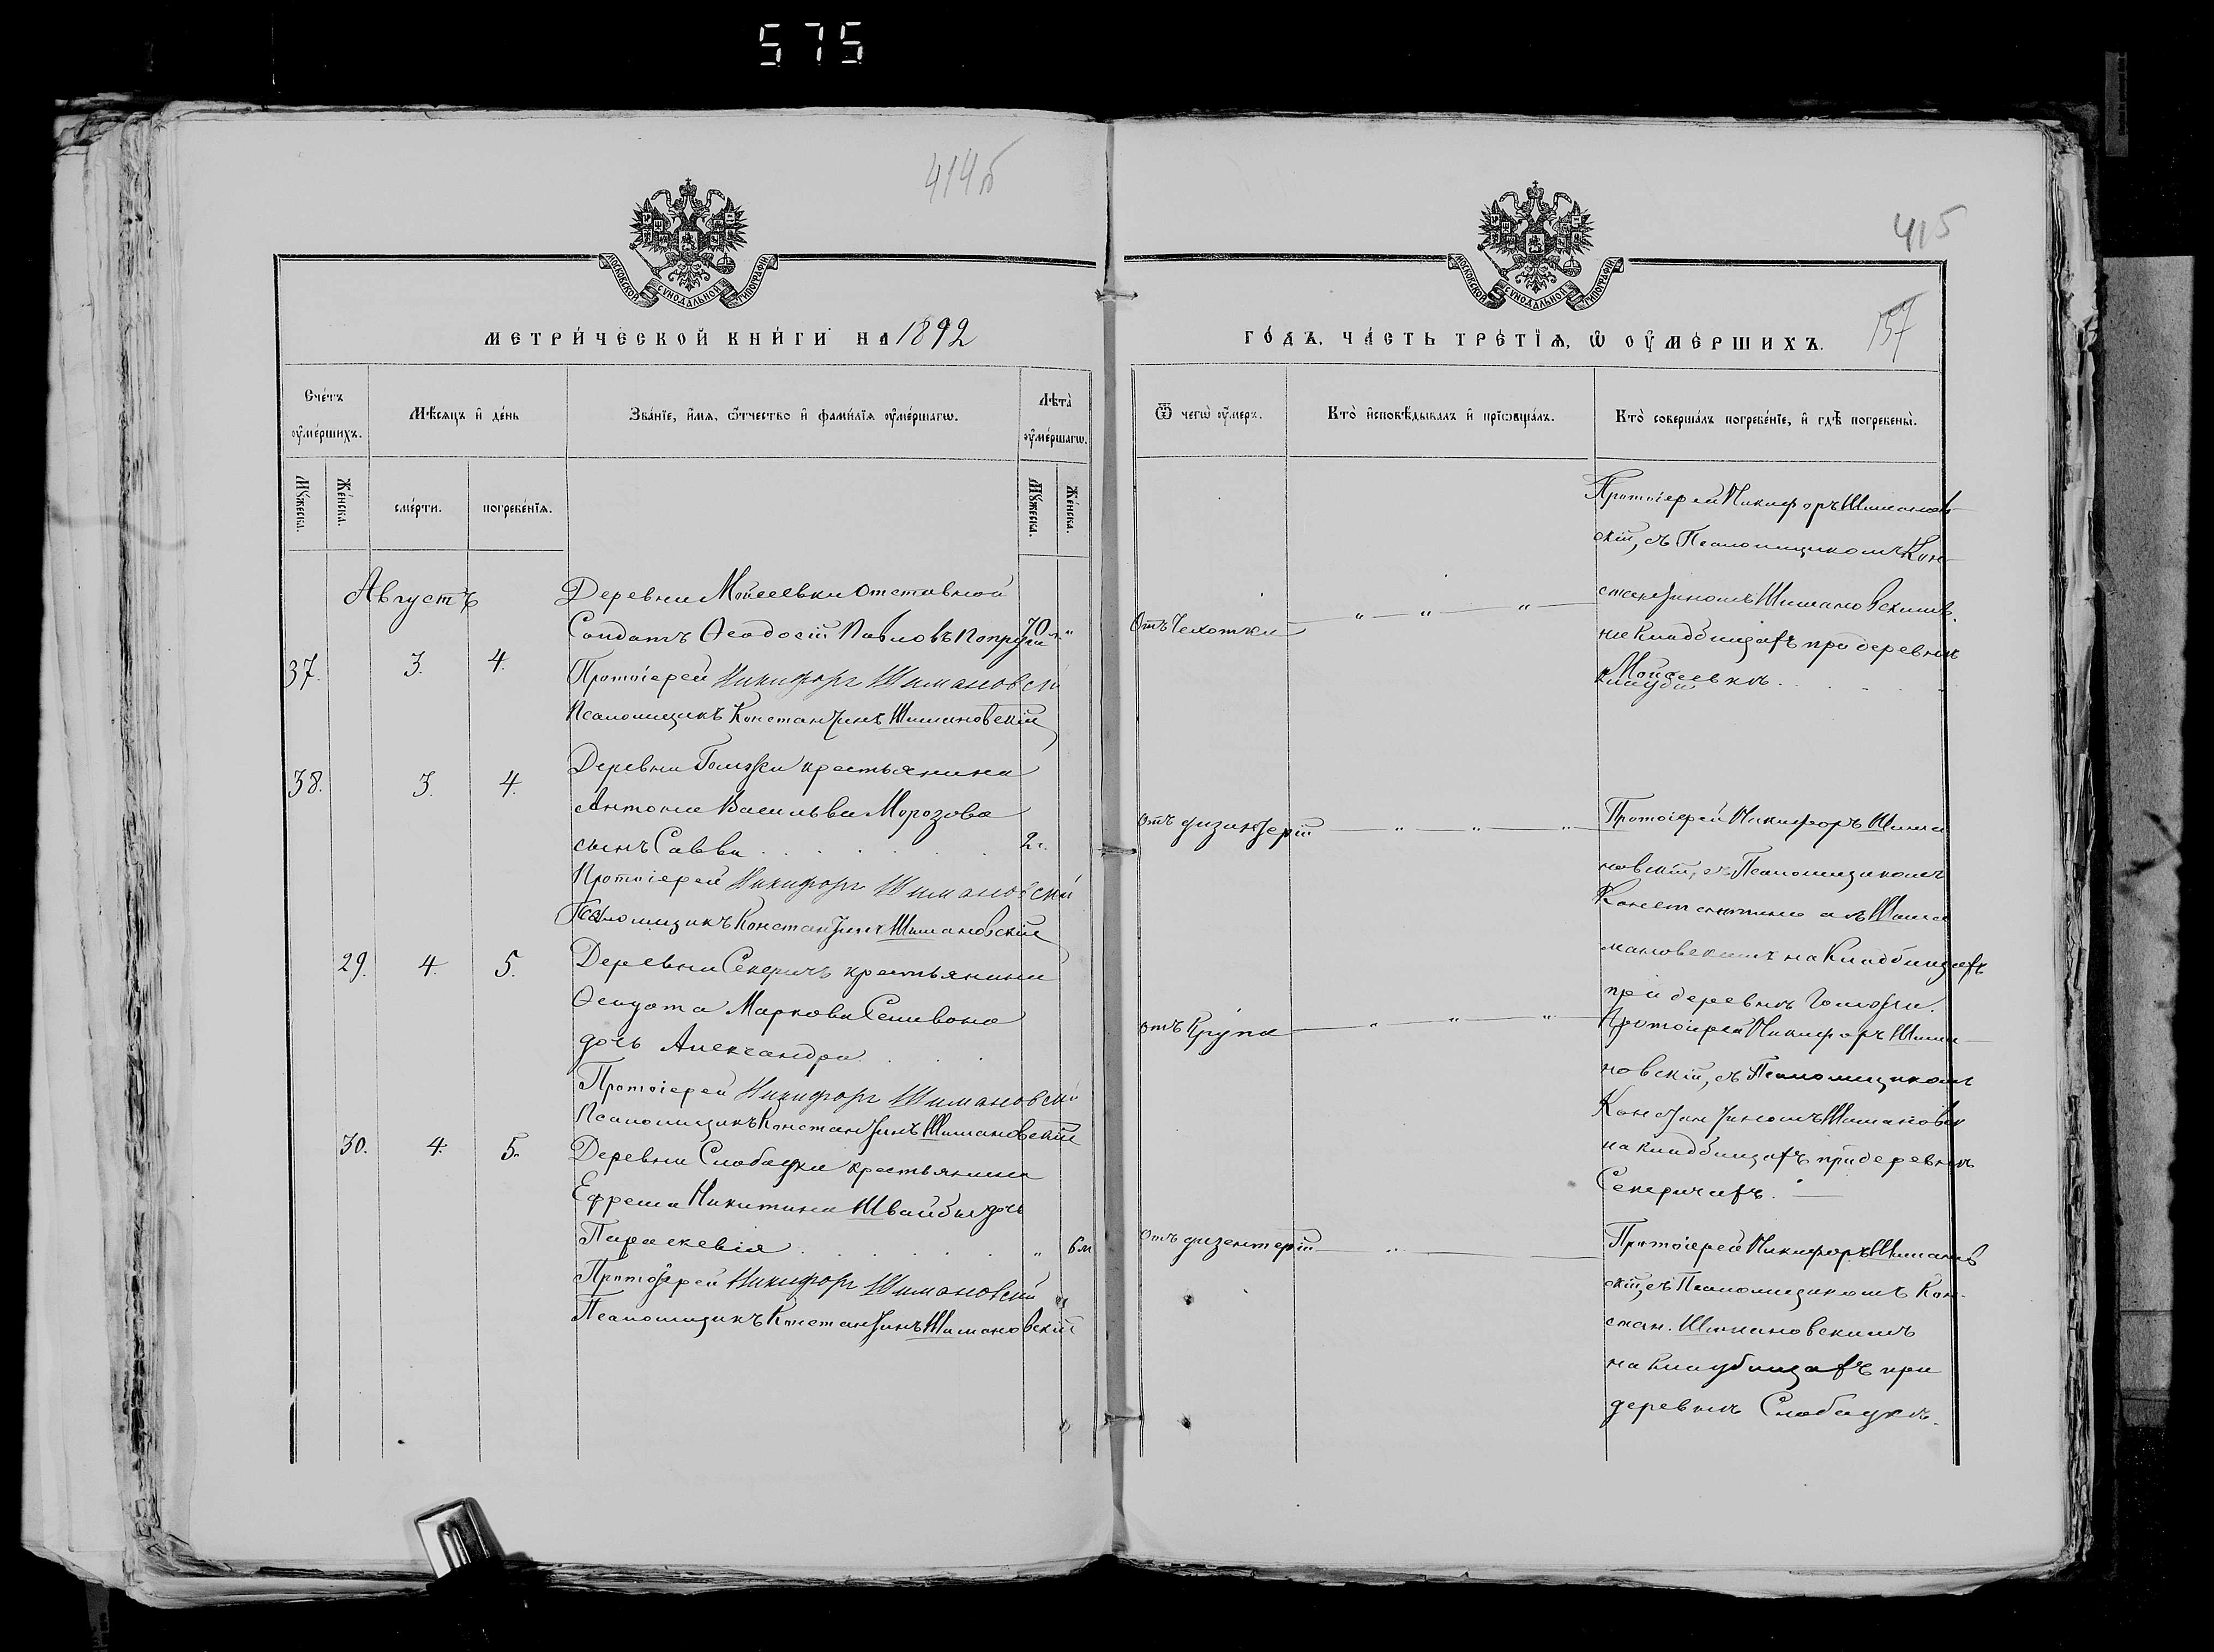 575
414б
МОСКОВСКОЙ СѴНОДАЛЬНОЙ ТИПОГРАФІИ
МЕТРИ́ЧЕСКОЙ КНИ́ГИ НА 1892
Сче́тъ ᲂу҆ме́ршихъ.
Мѣ́сяцъ и҆ де́нь
Зва́нїе, и҆́мѧ, ѻ҆́тчество и҆ фами́лїѧ ᲂу҆ме́ршагѡ.
Лѣ́та ᲂу҆ме́ршагѡ.
Мꙋ́жеска.
Же́нска.
сме́рти.
погребе́нїѧ.
Мꙋ́жеска.
Же́нска.
Августъ
Деревни Мойсеевки отставной
Солдатъ Ѳеодосій Павловъ 70
37. 3. 4.
Протоіерей Никифоръ Шимановскі
Псаломщикъ Константинъ Шимановскій
38. 3. 4.
Деревни Гомзки крестьянина
Антона Васильва Морозова
сынъ Савва 2 г.
Протоіерей Никифоръ Шимановскій
Псаломщикъ Константинъ Шимановскій
29. 4. 5.
Деревни Секеричъ крестьянина
Маркова Селивона
дочь Александра
Протоіерей Никифоръ Шимановскій
Псаломщикъ Константинъ Шимановскій
30. 4. 5.
Деревни Слободки крестьянина
Ефрема Никитина Швайбы дочь
Параскевія " 6 м
Протоіерей Никифоръ Шимановскій
Псаломщикъ Константинъ Шимановскій
415
157
МОСКОВСКОЙ СѴНОДАЛЬНОЙ ТИПОГРАФІИ
ГО́ДЪ, ЧА́СТЬ ТРЕ́ТІѦ, Ѡ ОУ҆МЕ́РШИХЪ.
Ѿ чегѡ̀ ᲂу҆́меръ.
Кто̀ и҆сповѣ́дывалъ и҆ прїѡбща́лъ.
Кто̀ соверша́лъ погребе́нїе, и҆ гдѣ̀ погребены̀.
Протоіерей Никифоръ Шиманов-
скій, съ Псаломщикомъ Кон-
стантиномъ Шимановскимъ
Отъ Чахотки
на кладбищахъ при деревнѣ
Мойсеевкѣ.
отъ дизинтеріи
Протоіерей Никифоръ Шима
новскій, съ Псаломщикомъ
Константиномъ Ши
мановскимъ на кладбищахъ
при деревнѣ Гомзки.
отъ Крупа
Протоіерей Никифоръ Шима-
новскій, съ Псаломщикомъ
Константиномъ Шимановск
на кладбищахъ при деревнѣ
Секеричахъ.
отъ дизентеріи
Протоіерей Никифоръ Шиманов
скій, съ Псаломщикомъ Кон-
стан. Шимановскимъ
на кладбищахъ при
деревнѣ Слободкѣ.